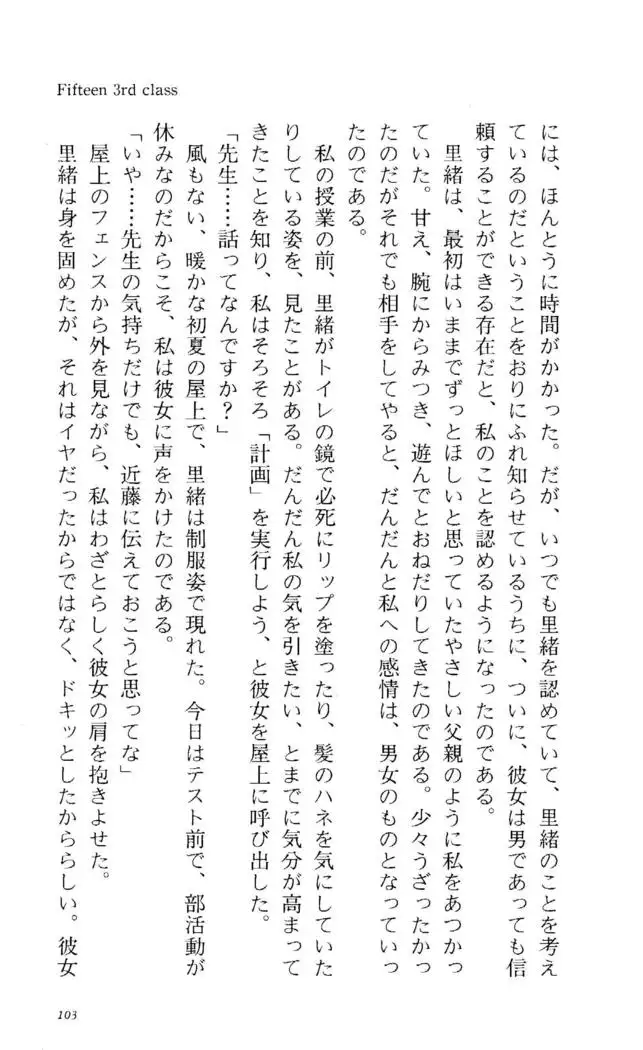 Fifteen 3rd class
には、ほんとうに時間がかかった。だが、いつでも里緒を認めていて、里緒のことを考え
ているのだということをおりにふれ知らせているうちに、ついに、彼女は男であっても信
頼することができる存在だと、私のことを認めるようになったのである。
里緒は、最初はいままでずっとほしいと思っていたやさしい父親のように私をあつかっ
ていた。甘え、腕にからみつき、遊んでとおねだりしてきたのである。少々うざったかっ
たのだがそれでも相手をしてやると、だんだんと私への感情は、男女のものとなっていっ
たのである。
私の授業の前、里緒がトイレの鏡で必死にリップを塗ったり、髪のハネを気にしていた
りしている姿を、見たことがある。だんだん私の気を引きたい、とまでに気分が高まって
きたことを知り、私はそろそろ「計画」を実行しよう、と彼女を屋上に呼び出した。
「先生……話ってなんですか？」
風もない、暖かな初夏の屋上で、里緒は制服姿で現れた。今日はテスト前で、部活動が
休みなのだからこそ、私は彼女に声をかけたのである。
「いや……先生の気持ちだけでも、近藤に伝えておこうと思ってな」
屋上のフェンスから外を見ながら、私はわざとらしく彼女の肩を抱きよせた。
里緒は身を固めたが、それはイヤだったからではなく、ドキッとしたかららしい。彼女
103